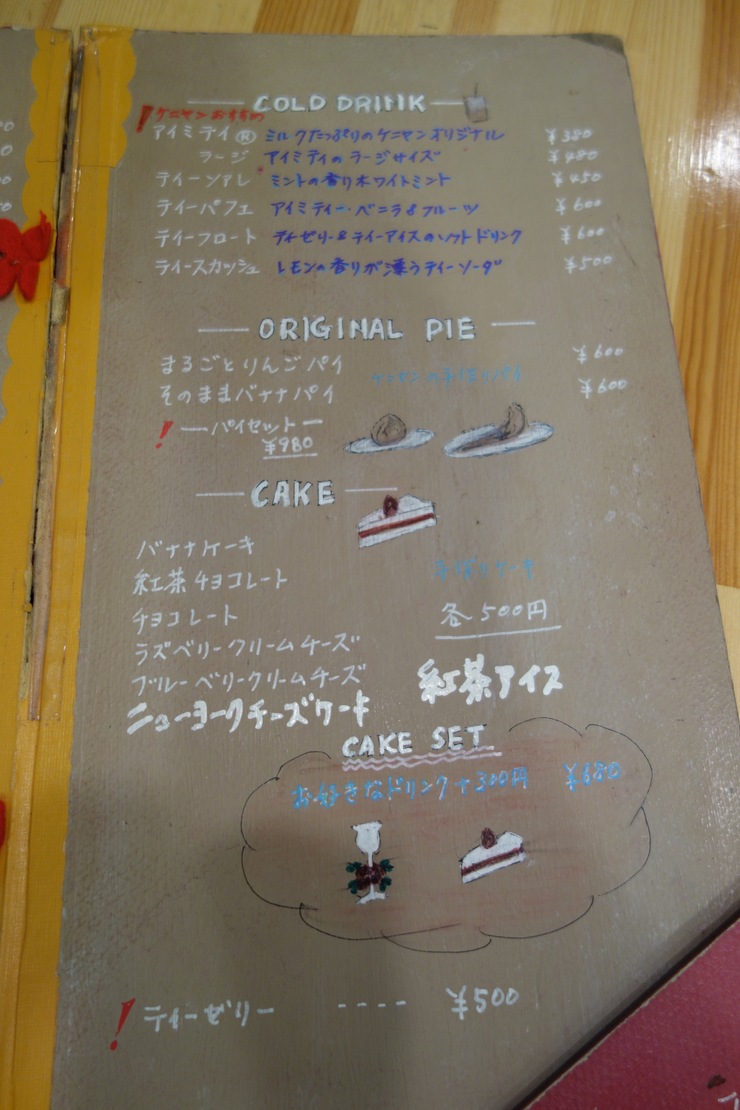 COLD DRINK
ケニヤンおすすめ
アイミティⓇ ミルクたっぷりのケニヤンオリジナル ¥380
ラージ アイミティのラージサイズ ¥480
ティーソアレ ミントの香りホワイトミント ¥450
ティーパフェ アイミティー・バニラ&フルーツ ¥600
ティーフロート ティゼリー&ティーアイスのソフトドリンク ¥600
ティースカッシュ レモンの香りが漂うティーソーダ ¥500
ORIGINAL PIE
まるごとりんごパイ ¥600
ケニヤンの手作りパイ
そのままバナナパイ ¥600
! パイセット
¥980
CAKE
バナナケーキ
紅茶チョコレート
手作りケーキ
チョコレート
各500円
ラズベリークリームチーズ
ブルーベリークリームチーズ
紅茶アイス
ニューヨークチーズケーキ
CAKE SET
お好きなドリンク+300円 ¥680
! ティーゼリー ---- ¥500